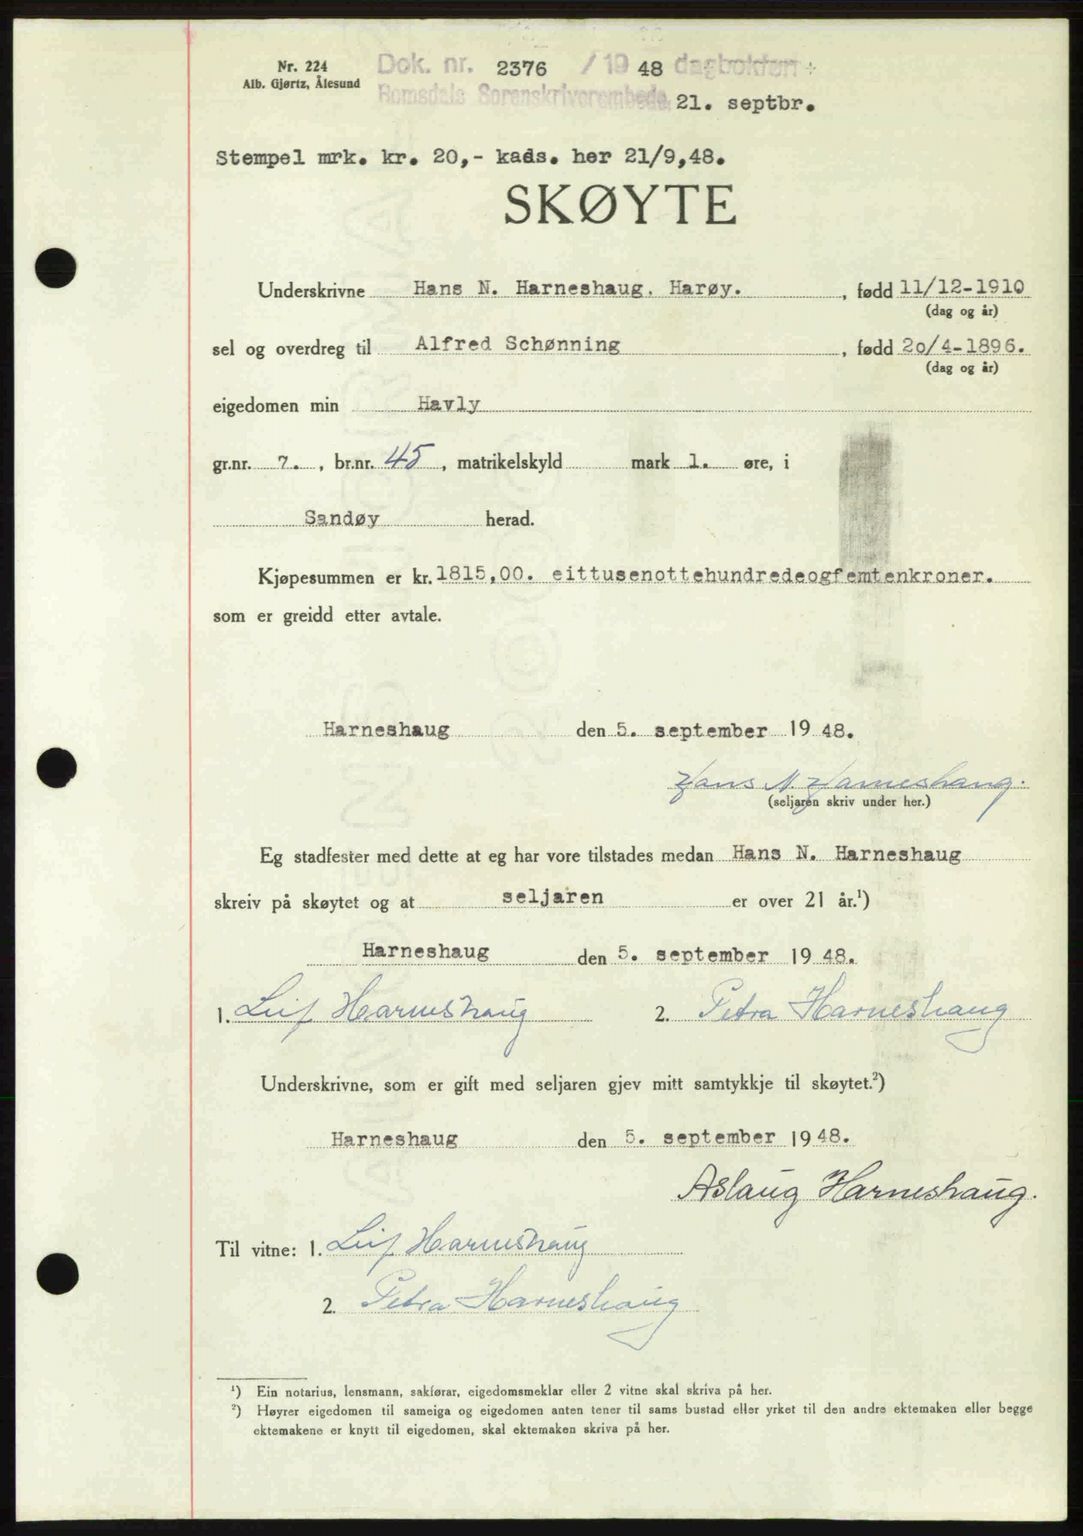 Nr. 224
Alb. Gjørtz, Ålesund
Dok. nr. 2376 / 19 48 dagboken
Romsdals Sorenskriverembede, 21. septbr.
Stempel mrk. kr. 20,- kads. her 21/9,48.
SKØYTE
Underskrivne Hans N. Harneshaug. Harøy. , fødd 11/12-1910
(dag og år)
sel og overdreg til Alfred Schønning , fødd 20/4-1896.
(dag og år)
eigedomen min Havly
gr.nr. 7. , br.nr. 45 , matrikelskyld mark 1. øre, i
Sandøy herad.
Kjøpesummen er kr. 1815,00. eittusenottehundredeogfemtenkroner.
som er greidd etter avtale.
Harneshaug den 5. september 19 48.
Hans N. Harneshaug.
(seljaren skriv under her.)
Eg stadfester med dette at eg har vore tilstades medan Hans N. Harneshaug
skreiv på skøytet og at seljaren er over 21 år.¹)
Harneshaug den 5. september 19 48.
1. Leif Harneshaug 2. Petra Harneshaug
Underskrivne, som er gift med seljaren gjev mitt samtykkje til skøytet.²)
Harneshaug den 5. september 19 48.
Aslaug Harneshaug.
Til vitne: 1. Leif Harneshaug
2. Petra Harneshaug
¹) Ein notarius, lensmann, sakførar, eigedomsmeklar eller 2 vitne skal skriva på her.
²) Høyrer eigedomen til sameiga og eigedomen anten tener til sams bustad eller yrket til den andre ektemaken eller begge
ektemakene er knytt til eigedomen, skal ektemaken skriva på her.